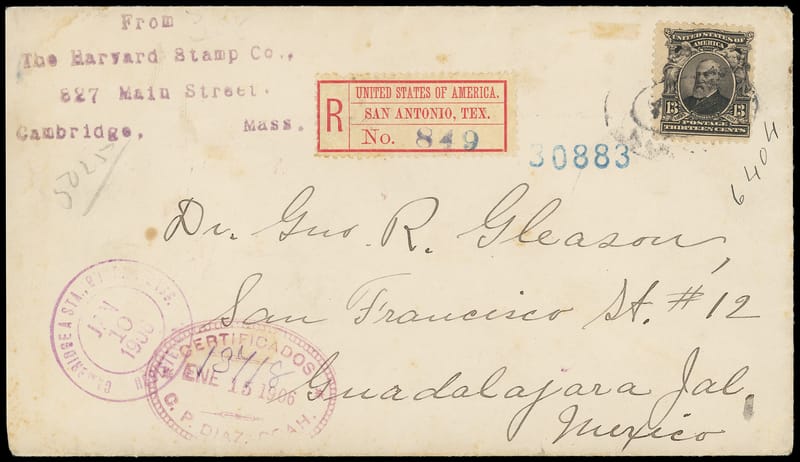 From
The Harvard Stamp Co.,
827 Main Street.
Cambridge, Mass.
UNITED STATES OF AMERICA.
R
SAN ANTONIO, TEX.
No. 849
UNITED STATES OF
AMERICA
13 13
POSTAGE
THIRTEEN CENTS
30883
6404
Dr. Geo. R. Gleason,
San Francisco St. # 12
Guadalajara Jal.
Mexico
CAMBRIDGE A STA., B
JAN
10
1906
CERTIFICADOS
ENE 15 1906
C. P. DIAZ, COAH.